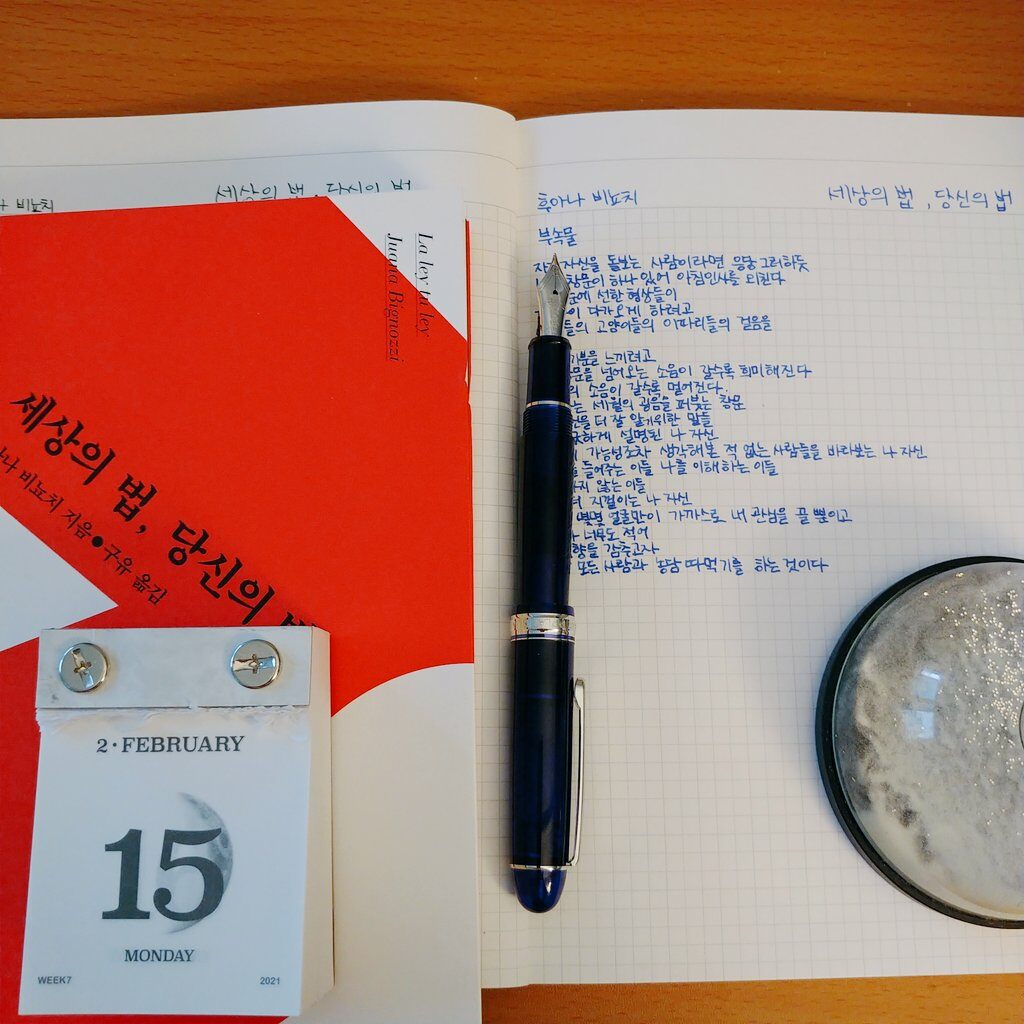 비뇨치
세상의 법, 당신의 법
La ley tu ley
Juana Bignozzi
세상의 법, 당신의
비뇨치 지음●구유 옮김
2·FEBRUARY
15
MONDAY
WEEK7
2021
후아나 비뇨치
세상의 법, 당신의 법
부속물
자신을 돌보는 사람이라면 응당 그러하듯
창문이 하나 있어 아침인사를 외친다
선한 형상들이
다가오게 하려고
들의 고양이들의 이파리들의 걸음을
기분을 느끼려고
문을 넘어오는 소음이 갈수록 희미해진다
소음이 갈수록 멀어진다.
는 세월의 굉음을 퍼붓는 창문
더 잘 알기위한 말들
하게 설명된 나 자신
가능성조차 생각해본 적 없는 사람들을 바라보는 나 자신
들어주는 이들 나를 이해하는 이들
지 않는 이들
지껄이는 나 자신
몇몇 얼굴만이 가까스로 내 관심을 끌 뿐이고
너무도 적어
향을 감추고자
모든 사람과 농담 따먹기를 하는 것이다